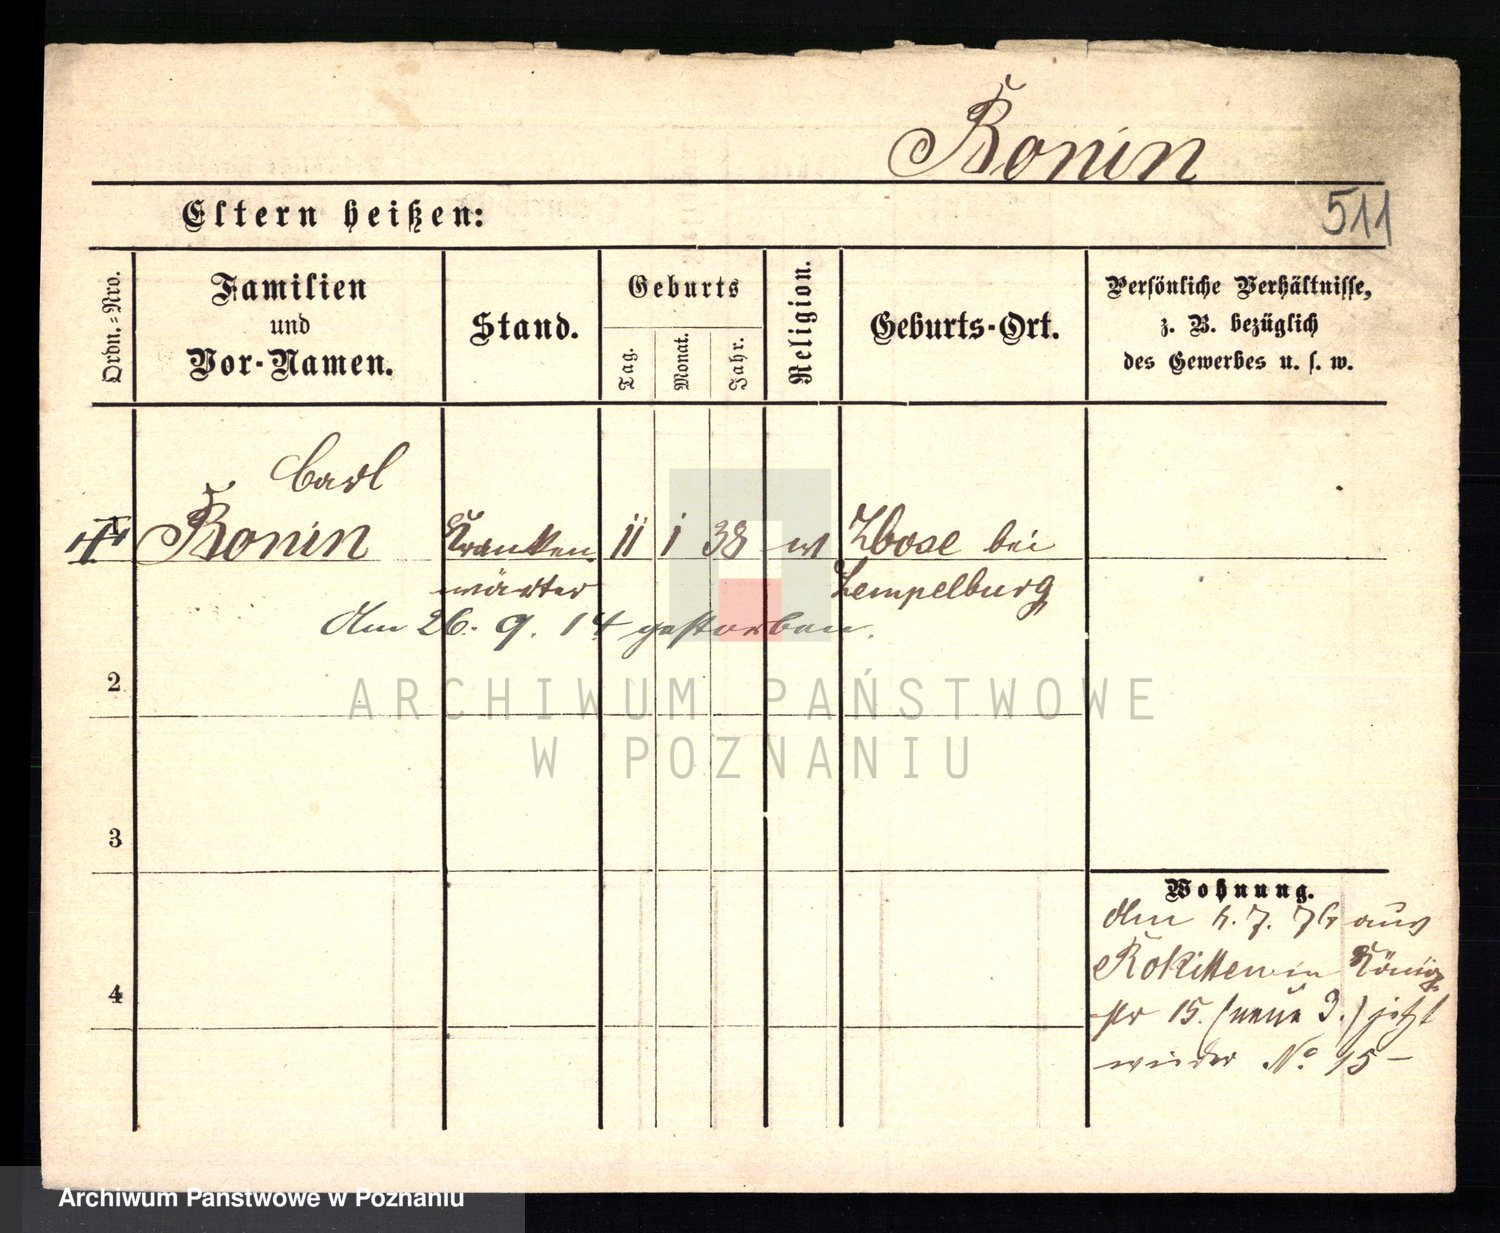 Bonin
511
Eltern heißen:
Ordn.-Nro.
Familien
und
Vor-Namen.
Stand.
Geburts
Tag.
Monat.
Jahr.
Religion.
Geburts-Ort.
Persönliche Verhältnisse,
z. B. bezüglich
des Gewerbes u. s. w.
Carl
1
Bonin
Kranken
wärter
11
1
38
Zbose bei
Zempelburg
Am 26. 9. 14 gestorben.
2
3
4
Wohnung.
aus
Rokitten in König
str 15. (neue 3.) jetzt
wieder No 15 —
ARCHIWUM PAŃSTWOWE
W POZNANIU
Archiwum Panstwowe w Poznaniu